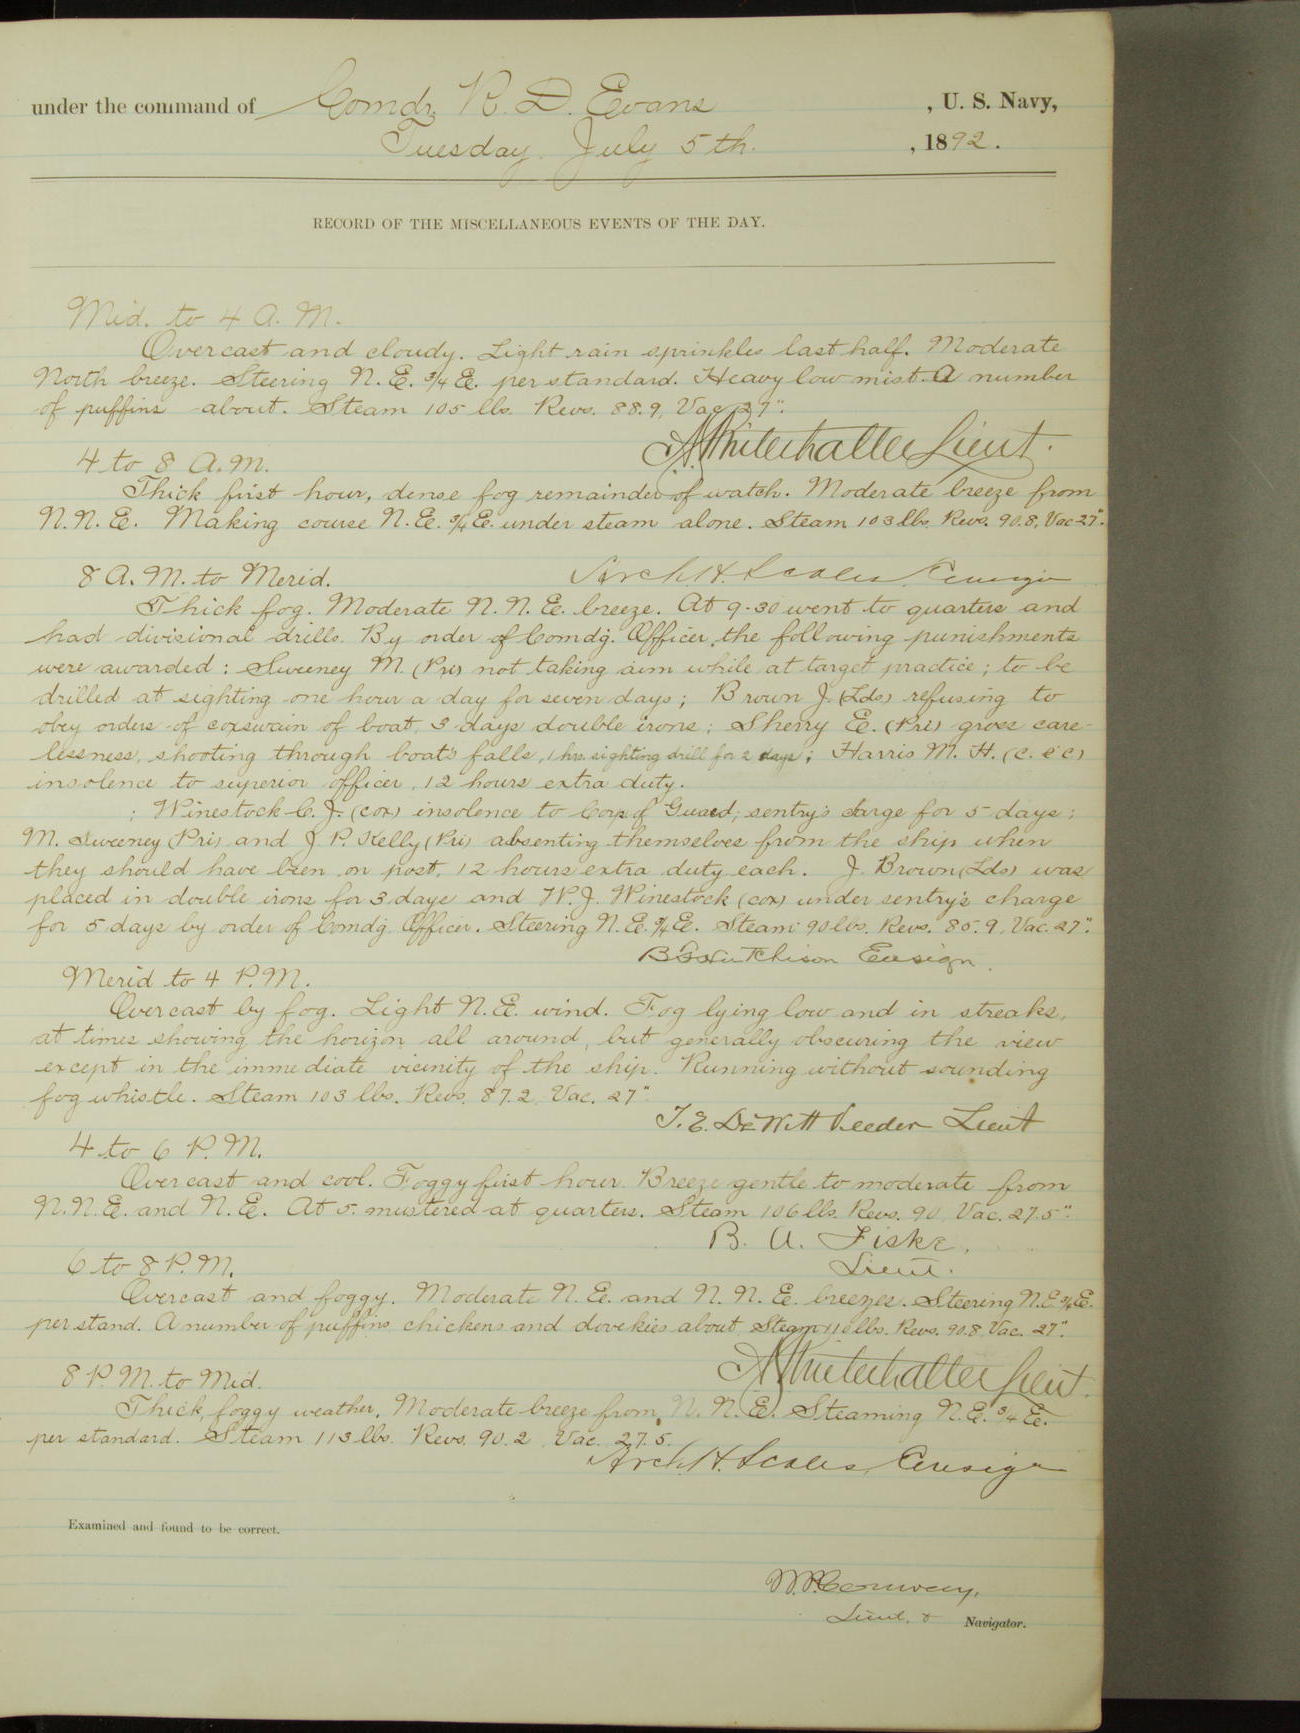 under the command of Comdr. R. D. Evans, U. S. Navy,
Tuesday July 5th., 1892.
RECORD OF THE MISCELLANEOUS EVENTS OF THE DAY.
Mid. to 4 A. M.
Overcast and cloudy. Light rain sprinkles last half. Moderate
North breeze. Steering N. E. 3/4 E. per standard. Heavy low mist. A number
of puffins about. Steam 105 lbs. Revs. 88.9, Vac 27".
A. Winterhalter Lieut.
4 to 8 A. M.
Thick first hour, dense fog remainder of watch. Moderate breeze from
N. N. E. Making course N. E. 3/4 E. under steam alone. Steam 103 lbs. Revs. 90.8, Vac 27".
Arch. H. Scales Ensign
8 A. M. to Merid.
Thick fog. Moderate N. N. E. breeze. At 9-30 went to quarters and
had divisional drills. By order of Comdg. Officer, the following punishments
were awarded: Sweeney M. (Pri) not taking aim while at target practice; to be
drilled at sighting one hour a day for seven days; Brown J. (Lds) refusing to
obey orders of coxswain of boat, 3 days double irons; Sherry E. (Pri) gross care-
lessness, shooting through boat's falls, 1 hrs. sighting drill for 2 days; Harris M. H. (C. & C)
insolence to superior officer, 12 hours extra duty.
; Winestock C. J. (cox) insolence to Corp. of Guard, sentry's charge for 5 days;
M. Sweeney (Pri) and J. P. Kelly (Pri) absenting themselves from the ship when
they should have been on post, 12 hours extra duty each. J. Brown (Lds) was
placed in double irons for 3 days and W. J. Winestock (cox) under sentry's charge
for 5 days by order of Comdg. Officer. Steering N. E. 3/4 E. Steam 90 lbs. Revs. 85.9, Vac. 27".
B. F. Hutchison Ensign.
Merid to 4 P. M.
Overcast by fog. Light N. E. wind. Fog lying low and in streaks,
at times showing the horizon all around, but generally obscuring the view
except in the immediate vicinity of the ship. Running without sounding
fog whistle. Steam 103 lbs. Revs. 87.2, Vac. 27".
T. E. DeWitt Veeder Lieut
4 to 6 P. M.
Overcast and cool. Foggy first hour. Breeze gentle to moderate from
N. N. E. and N. E. At 5. mustered at quarters. Steam 106 lbs. Revs. 90, Vac. 27.5".
B. A. Fiske,
Lieut.
6 to 8 P. M.
Overcast and foggy. Moderate N. E. and N. N. E. breezes. Steering N. E. 3/4 E.
per stand. A number of puffins chickens and dovekies about. Steam 110 lbs. Revs. 90.8, Vac. 27".
A. Winterhalter Lieut.
8 P. M. to Mid.
Thick, foggy weather. Moderate breeze from N. N. E. Steaming N. E. 3/4 E.
per standard. Steam 113 lbs. Revs. 90.2 Vac. 27.5.
Arch. H. Scales, Ensign
Examined and found to be correct.
W. P. Conway,
Lieut. & Navigator.